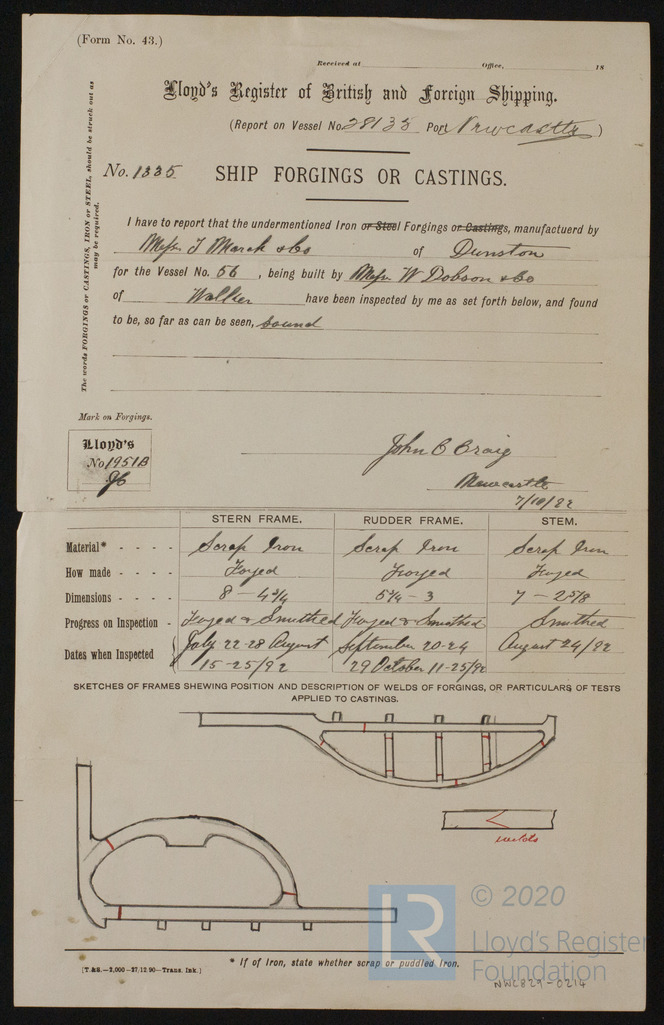 (Form No. 43.)
Received at Office, 18
Lloyd's Register of British and Foreign Shipping.
(Report on Vessel No. 28135 Port Newcastle)
No. 1335 SHIP FORGINGS OR CASTINGS.
The words FORGINGS or CASTINGS, IRON or STEEL, should be struck out as may be required.
I have to report that the undermentioned Iron or Steel Forgings or Castings, manufactuerd by
Messrs J Marck & Co of Dunston
for the Vessel No. 56, being built by Messrs W Dobson & Co
of Walker have been inspected by me as set forth below, and found
to be, so far as can be seen, sound
Mark on Forgings.
Lloyd's
No 1951B
John C Craig
Newcastle
7/10/92
STERN FRAME. RUDDER FRAME. STEM.
Material* - - - - Scrap Iron Scrap Iron Scrap Iron
How made - - - - Forged Forged Forged
Dimensions - - - - 8 — 4 3/4 5 1/4 — 3 7 — 2 5/8
Progress on Inspection - Forged & Smithed Forged & Smithed Smithed
Dates when Inspected July 22-28 August September 20-24 August 24/92
15-25/92 29 October 11-25/92
SKETCHES OF FRAMES SHEWING POSITION AND DESCRIPTION OF WELDS OF FORGINGS, OR PARTICULARS OF TESTS
APPLIED TO CASTINGS.
LR
© 2020
Lloyd's Register
Foundation
* If of Iron, state whether scrap or puddled Iron.
[T & S.—2,000—27/12/90—Trans. Ink.]
NWC829-0214